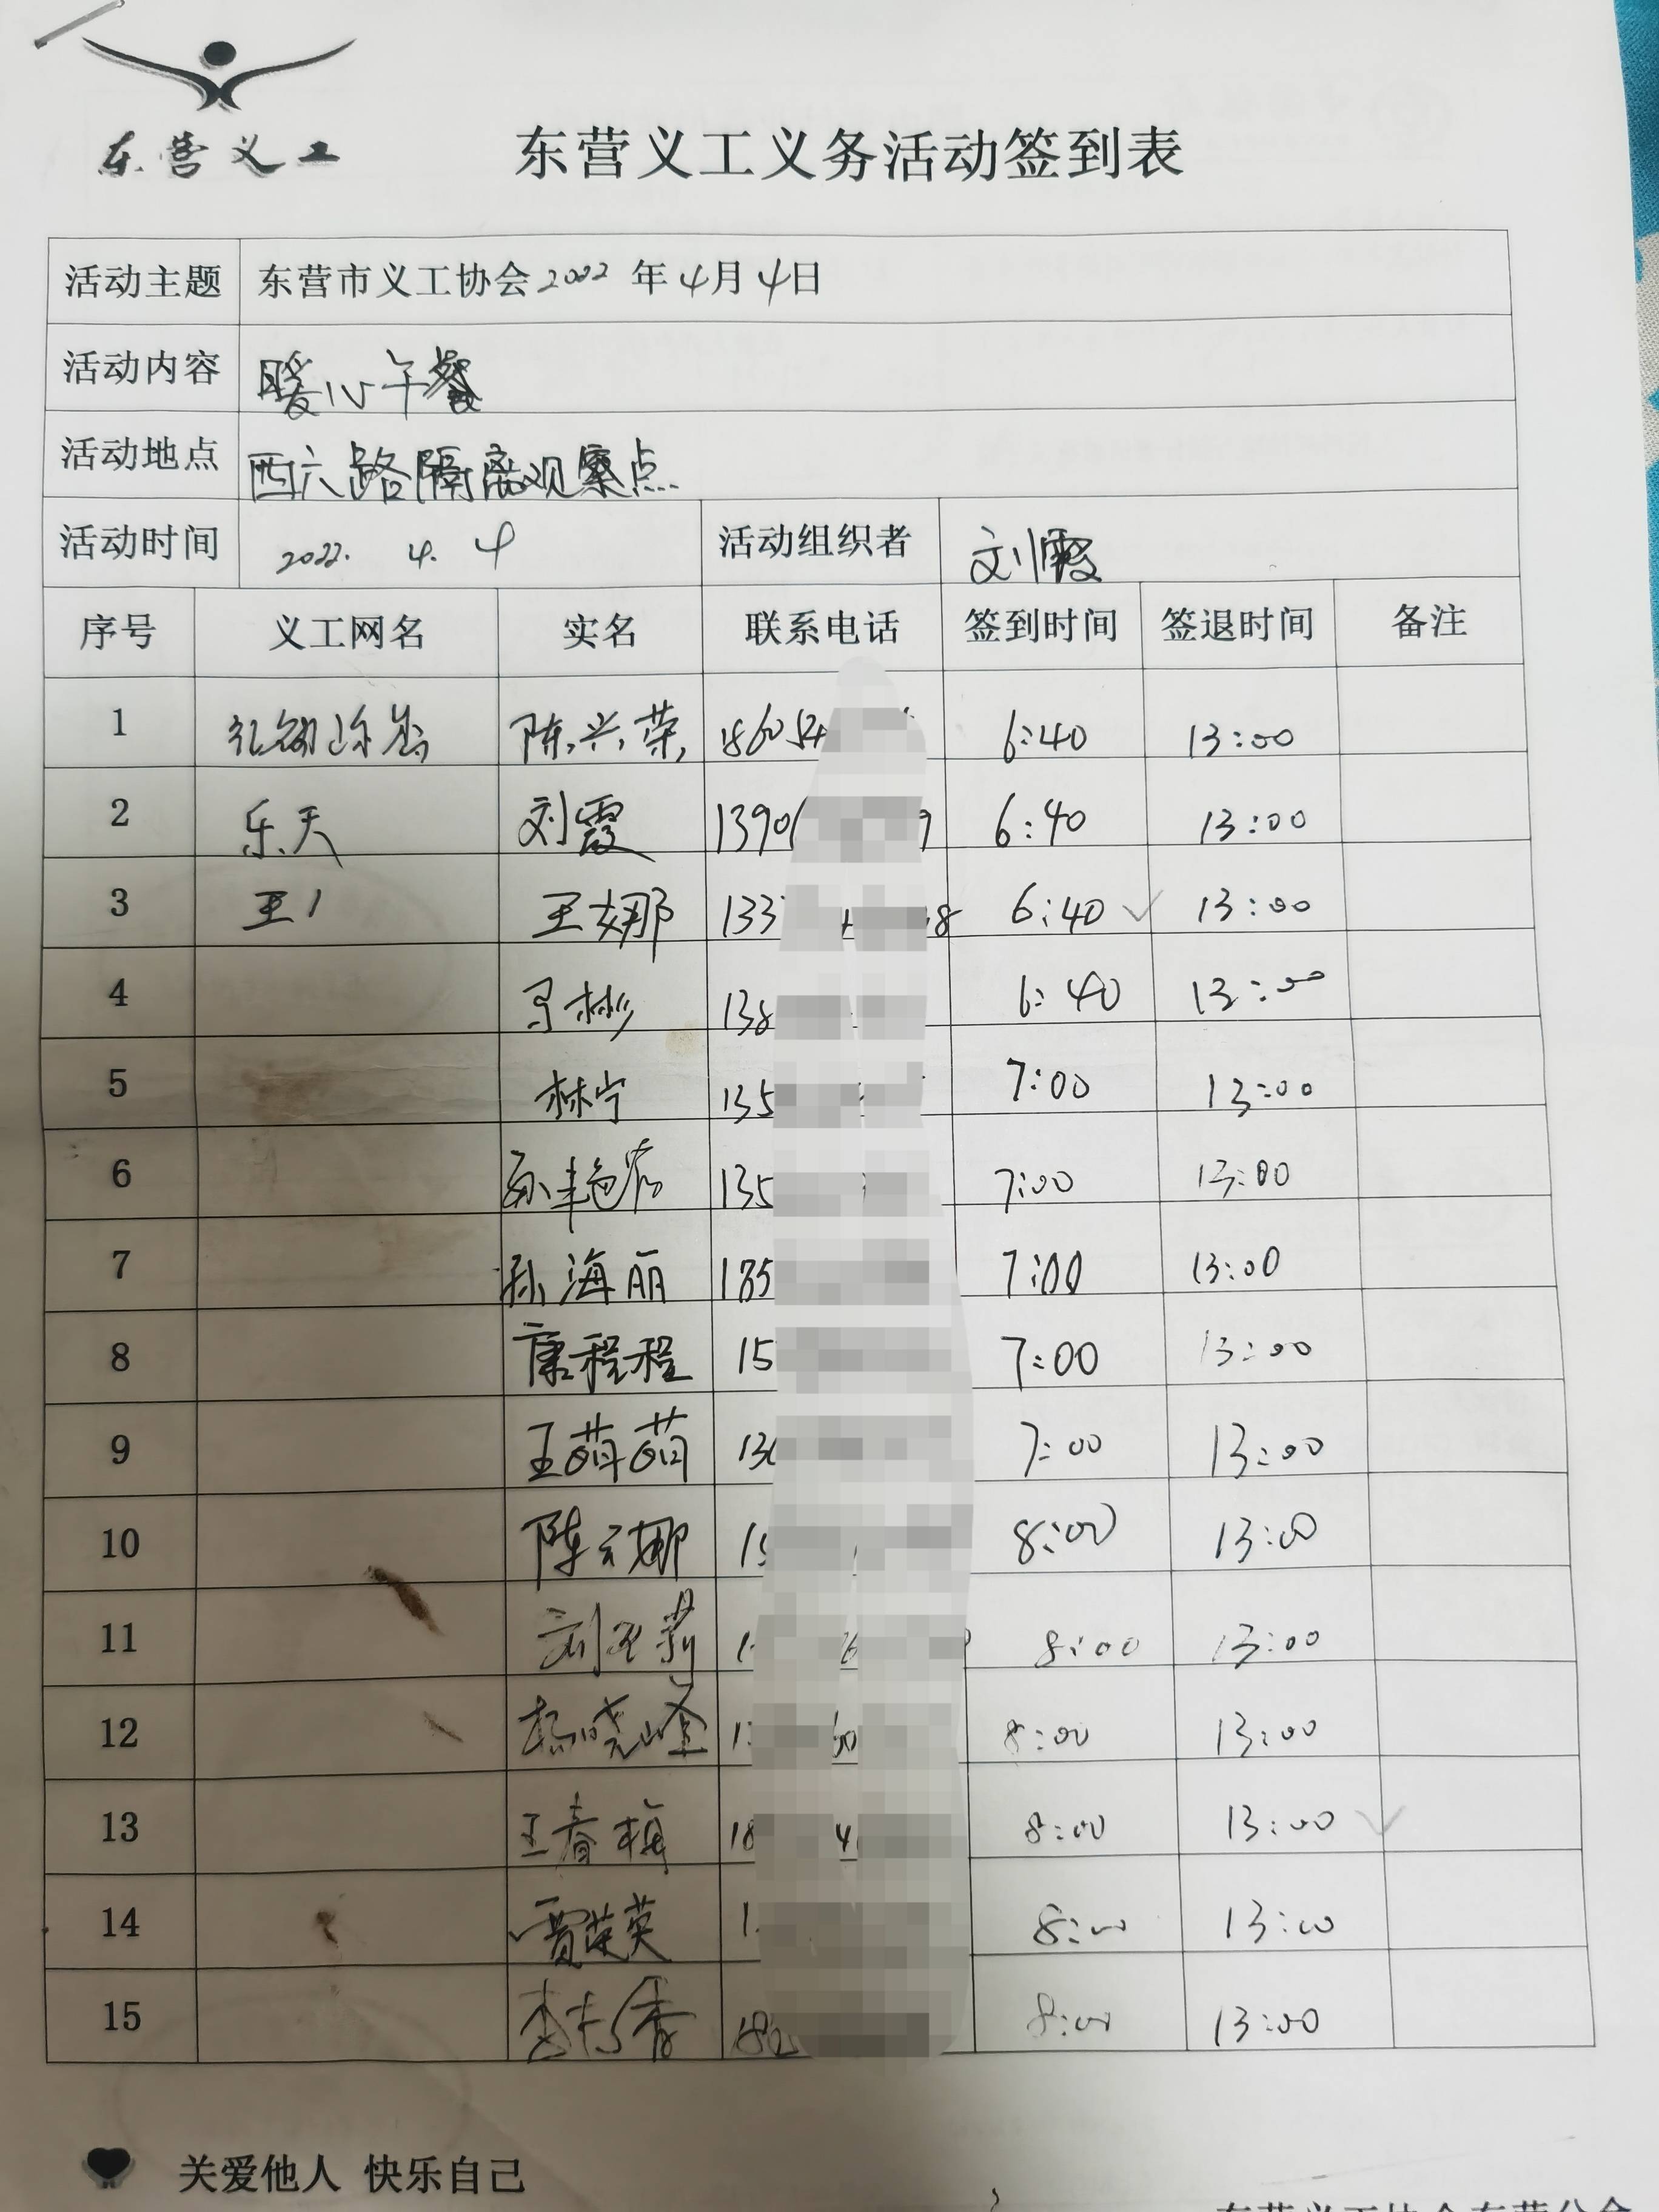 东营义工
东营义工义务活动签到表
活动主题 东营市义工协会2022年4月4日
活动内容 暖心午餐
活动地点 西六路隔离观察点
活动时间 2022. 4. 4 活动组织者 刘霞
序号 义工网名 实名 联系电话 签到时间 签退时间 备注
1 陈兴荣 186054 6:40 13:00
2 乐天 刘霞 1390 9 6:40 13:00
3 王 王娜 133 8 6:40 13:00
4 138 6:40 13:00
5 林宁 135 7:00 13:00
6 135 7:00 13:00
7 孙海丽 185 7:00 13:00
8 康程程 15 7:00 13:00
9 王萌萌 13 7:00 13:00
10 陈云娜 15 8:00 13:00
11 1 8:00 13:00
12 杨晓峰 1 60 8:00 13:00
13 王春梅 18 4 8:00 13:00
14 贾荣英 1 8:00 13:00
15 182 8:00 13:00
关爱他人 快乐自己